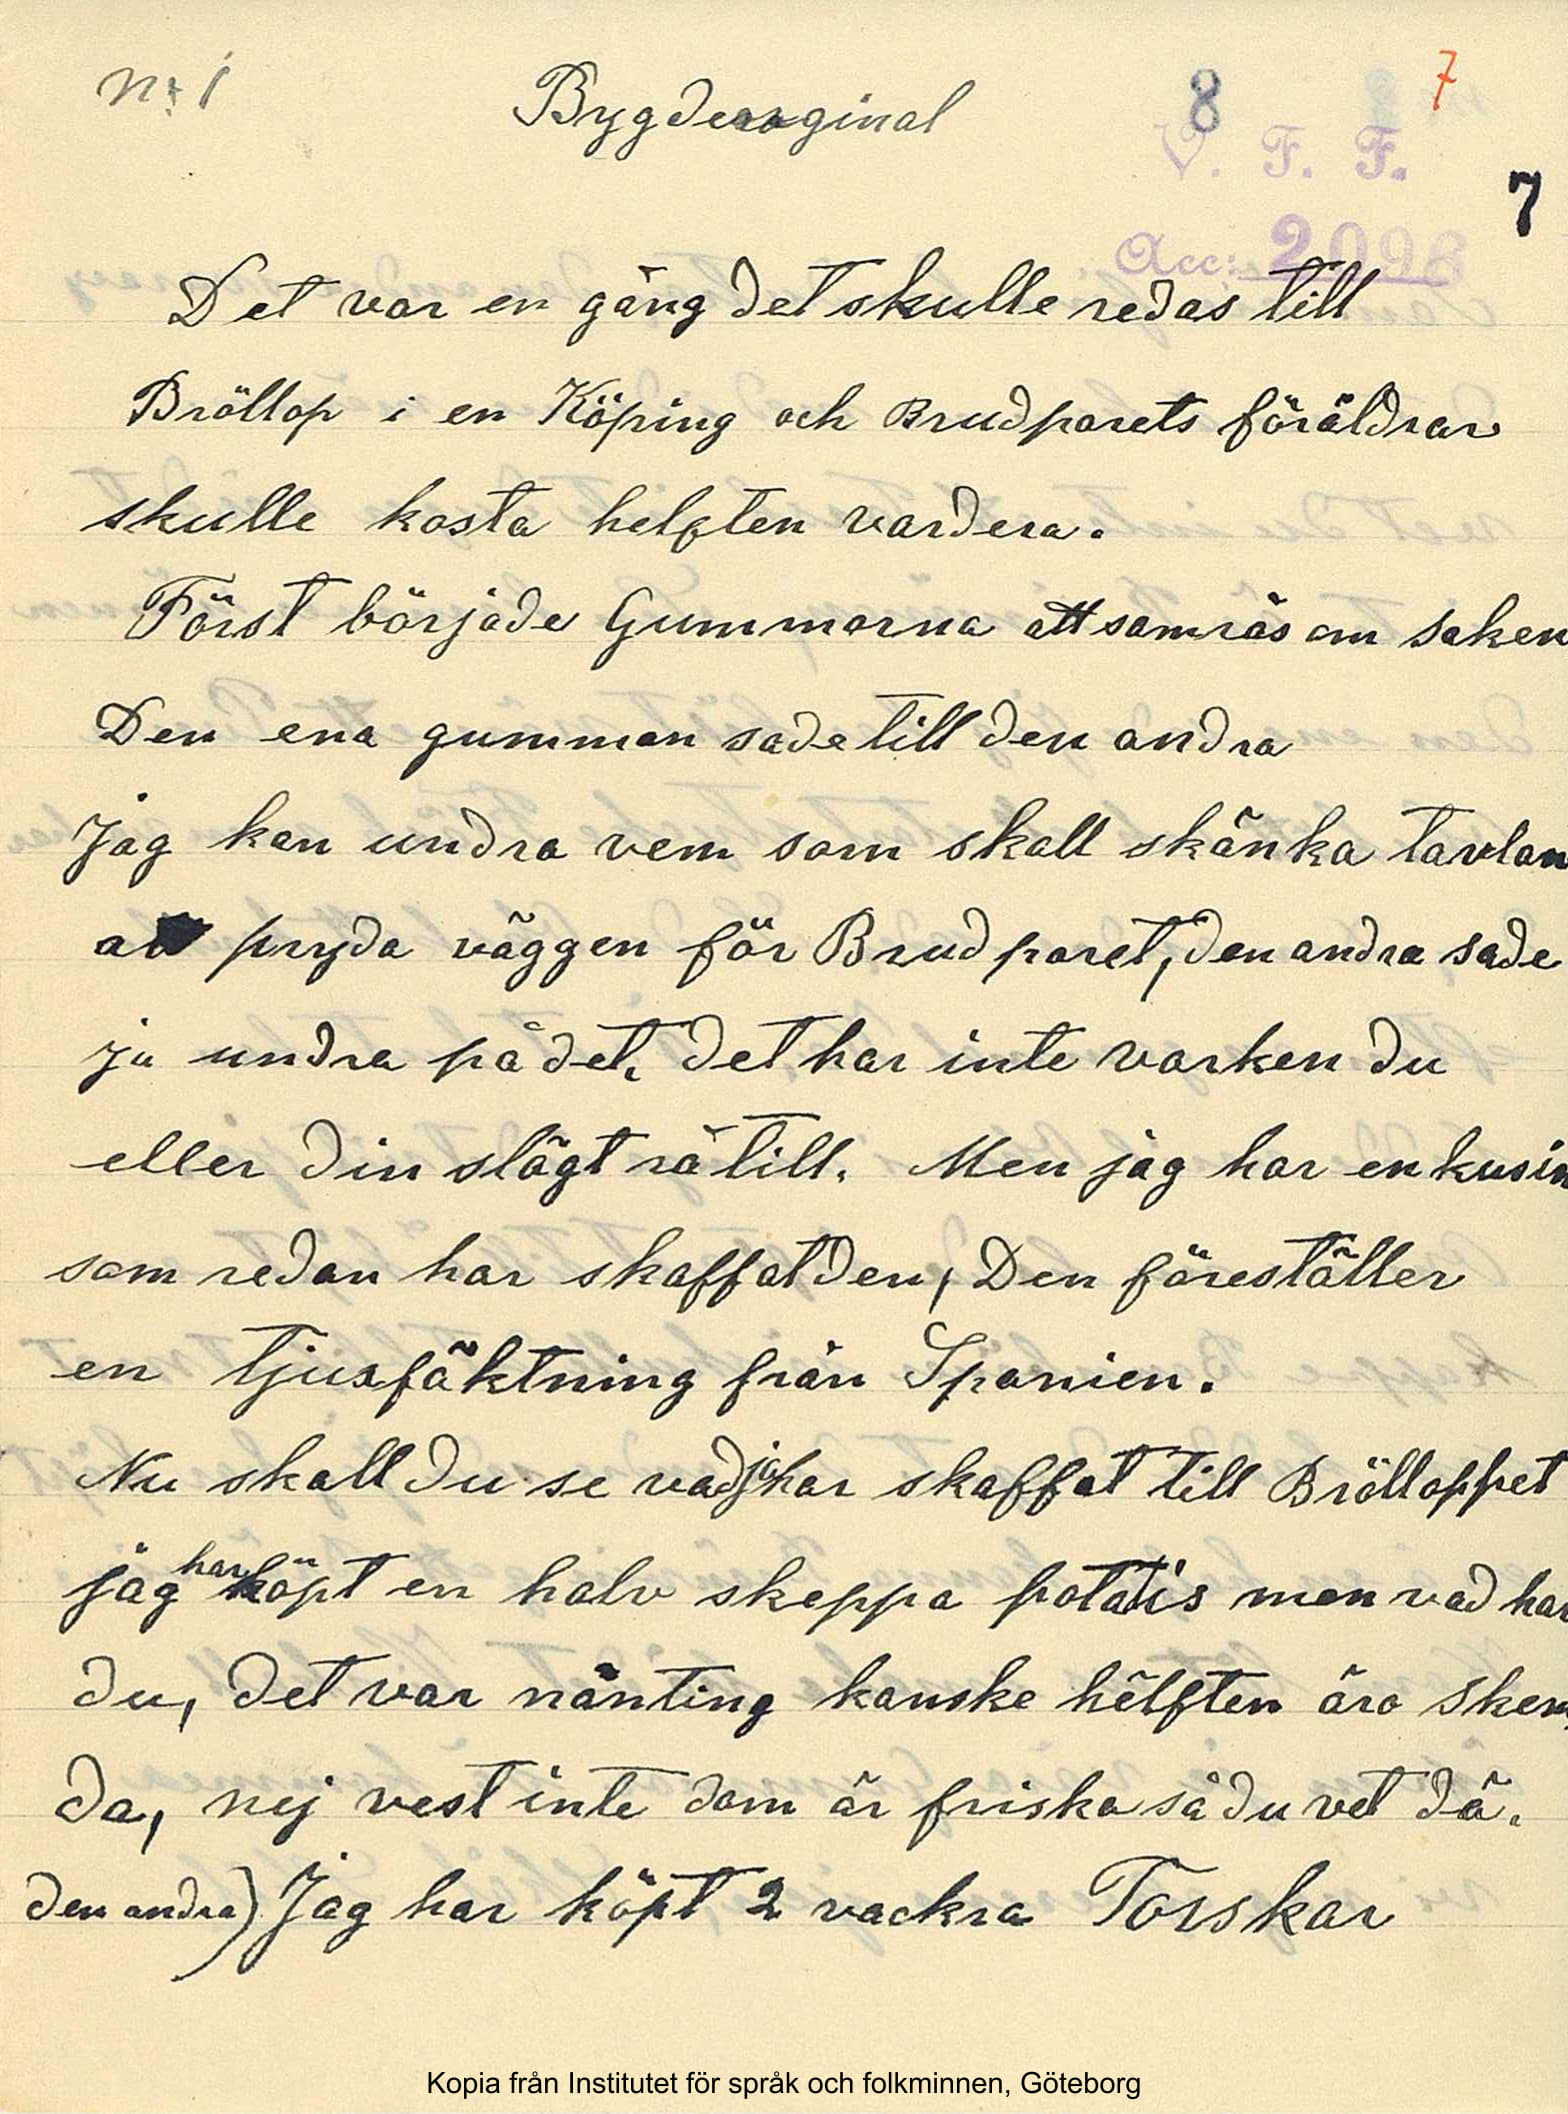 Nr 1
Bygdeorginal
8
7
V. F. F.
7
Acc: 2096
Det var en gång det skulle redas till
Bröllop i en Köping och Brudparets föräldrar
skulle kosta helften vardera.
Först började Gummorna att samrås om saken
Den ena gumman sade till den andra
Jag kan undra vem som skall skänka tavlan
att pryda väggen för Brudparet, den andra sade
ju undra på det. det har inte varken du
eller din slägt rå till. Men jag har en kusin
som redan har skaffat den, Den föreställer
en tjusfäktning från Spanien.
Nu skall du se vad jag har skaffat till Brölloppet
jag har köpt en halv skeppa potatis men vad har
du, det var nånting kanske hélften äro skem
da, nej vest inte dom är friska så du vet dä.
den andra) Jag har köpt 2 vackra Torskar
Kopia från Institutet för språk och folkminnen, Göteborg